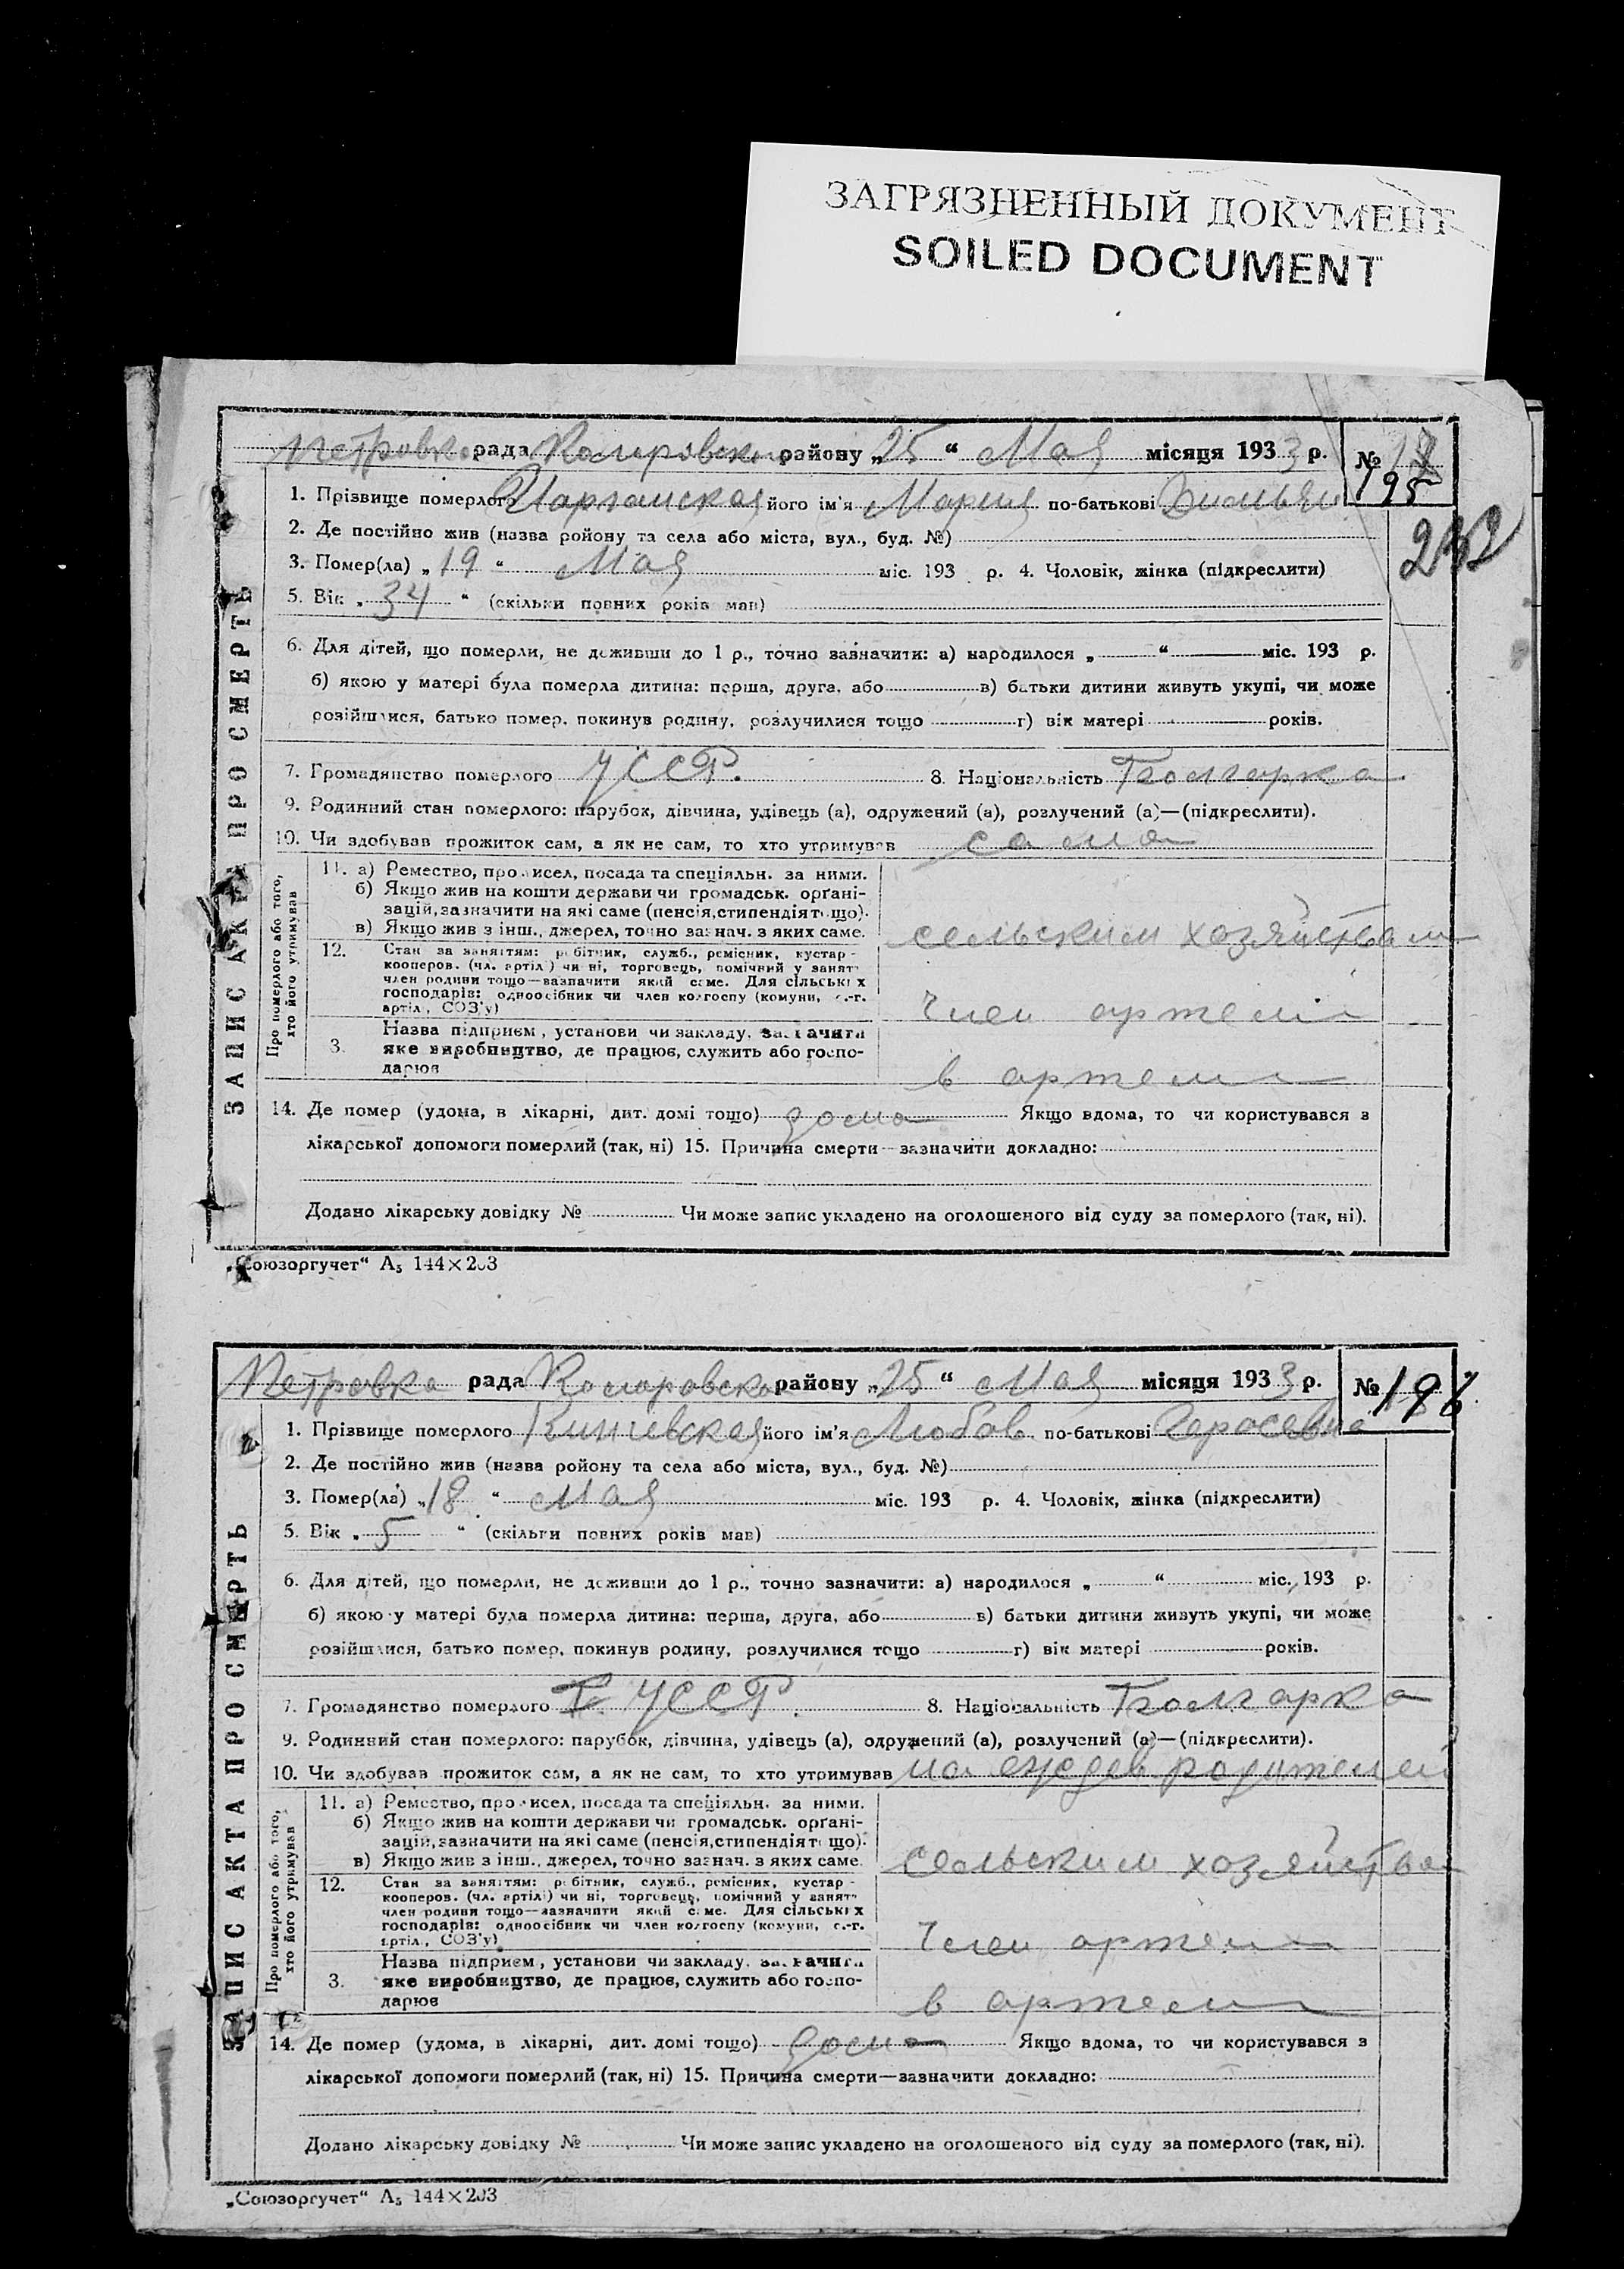 ЗАГРЯЗНЕННЫЙ ДОКУМЕНТ
SOILED DOCUMENT
рада району „25“ Мая місяця 1933 р. №
195
232
1. Прізвище померлого його ім'я Мария по-батькові
2. Де постійно жив (назва району та села або міста, вул., буд. №)
3. Помер(ла) „19“ Мая міс. 193 р. 4. Чоловік, жінка (підкреслити)
5. Вік „34“ (скільки повних років мав)
6. Для дітей, що померли, не доживши до 1 р., точно зазначити: а) народилося „ “ міс. 193 р.
б) якою у матері була померла дитина: перша, друга, або в) батьки дитини живуть укупі, чи може
розійшлися, батько помер, покинув родину, розлучилися тощо г) вік матері років.
7. Громадянство померлого УССР. 8. Національність Болгарка
9. Родинний стан померлого: парубок, дівчина, удівець (а), одружений (а), розлучений (а)—(підкреслити).
10. Чи здобував прожиток сам, а як не сам, то хто утримував сама
ЗАПИС АКТА ПРО СМЕРТЬ
Про померлого або того, хто його утримував
11. а) Ремество, промисел, посада та спеціяльн. за ними.
б) Якщо жив на кошти держави чи громадськ. орґані-
зацій, зазначити на які саме (пенсія, стипендія тощо).
в) Якщо жив з інш., джерел, точно зазнач. з яких саме.
сельским хозяйствам
12. Стан за заняттям: робітник, служб., ремісник, кустар -
кооперов. (чл. артілі) чи ні, торговець, помічний у занятті
член родини тощо—зазначити який саме. Для сільських
господарів: одноосібник чи член колгоспу (комуни, с.-г.
артілі, СОЗ'у)
Член артели
3. Назва підприєм., установи чи закладу, зазначити
яке виробництво, де працює, служить або госпо-
дарює
в артели
14. Де помер (удома, в лікарні, дит. домі тощо) дома Якщо вдома, то чи користувався з
лікарської допомоги померлий (так, ні) 15. Причина смерти—зазначити докладно:
Додано лікарську довідку № Чи може запис укладено на оголошеного від суду за померлого (так, ні).
„Союзоргучет“ А₅ 144×203
Петровка рада району „25“ Мая місяця 1933 р. № 196
1. Прізвище померлого його ім'я Любов по-батькові
2. Де постійно жив (назва району та села або міста, вул., буд. №)
3. Помер(ла) „18“ Мая міс. 193 р. 4. Чоловік, жінка (підкреслити)
5. Вік „5“ (скільки повних років мав)
6. Для дітей, що померли, не доживши до 1 р., точно зазначити: а) народилося „ “ міс. 193 р.
б) якою у матері була померла дитина: перша, друга, або в) батьки дитини живуть укупі, чи може
розійшлися, батько помер, покинув родину, розлучилися тощо г) вік матері років.
7. Громадянство померлого УССР. 8. Національність Болгарка
9. Родинний стан померлого: парубок, дівчина, удівець (а), одружений (а), розлучений (а)—(підкреслити).
10. Чи здобував прожиток сам, а як не сам, то хто утримував на родителей
ЗАПИС АКТА ПРО СМЕРТЬ
Про померлого або того, хто його утримував
11. а) Ремество, промисел, посада та спеціяльн. за ними.
б) Якщо жив на кошти держави чи громадськ. орґані-
зацій, зазначити на які саме (пенсія, стипендія тощо).
в) Якщо жив з інш., джерел, точно зазнач. з яких саме.
сельским хозяйствам
12. Стан за заняттям: робітник, служб., ремісник, кустар -
кооперов. (чл. артілі) чи ні, торговець, помічний у занятті
член родини тощо—зазначити який саме. Для сільських
господарів: одноосібник чи член колгоспу (комуни, с.-г.
артілі, СОЗ'у)
Член артели
3. Назва підприєм., установи чи закладу, зазначити
яке виробництво, де працює, служить або госпо-
дарює
в артели
14. Де помер (удома, в лікарні, дит. домі тощо) дома Якщо вдома, то чи користувався з
лікарської допомоги померлий (так, ні) 15. Причина смерти—зазначити докладно:
Додано лікарську довідку № Чи може запис укладено на оголошеного від суду за померлого (так, ні).
„Союзоргучет“ А₅ 144×203